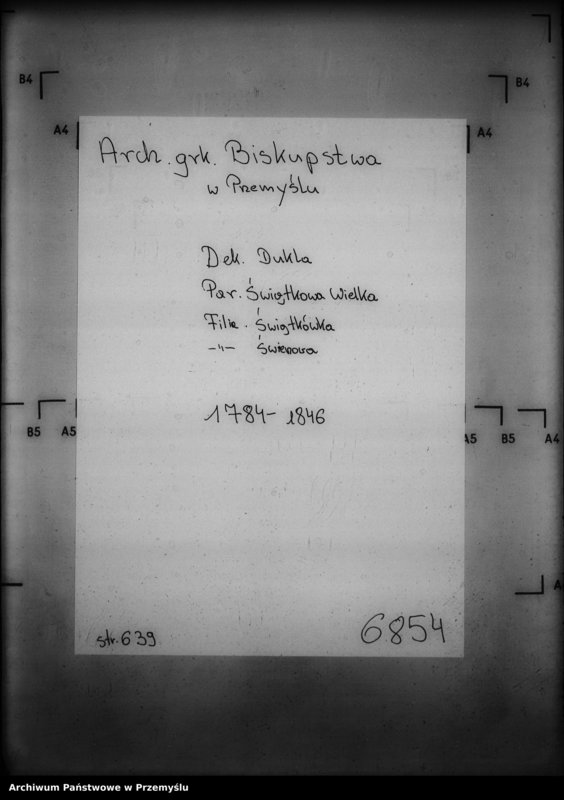 B4
B4
A4
A4
Arch. grk. Biskupstwa
w Przemyślu
Dek. Dukla
Par. Świątkowa Wielka
Filia. Świątkówka
-"- Świerzowa
1784- 1846
B5
A5
A5
B5
A4
A
str. 639
6854
Archiwum Państwowe w Przemyślu